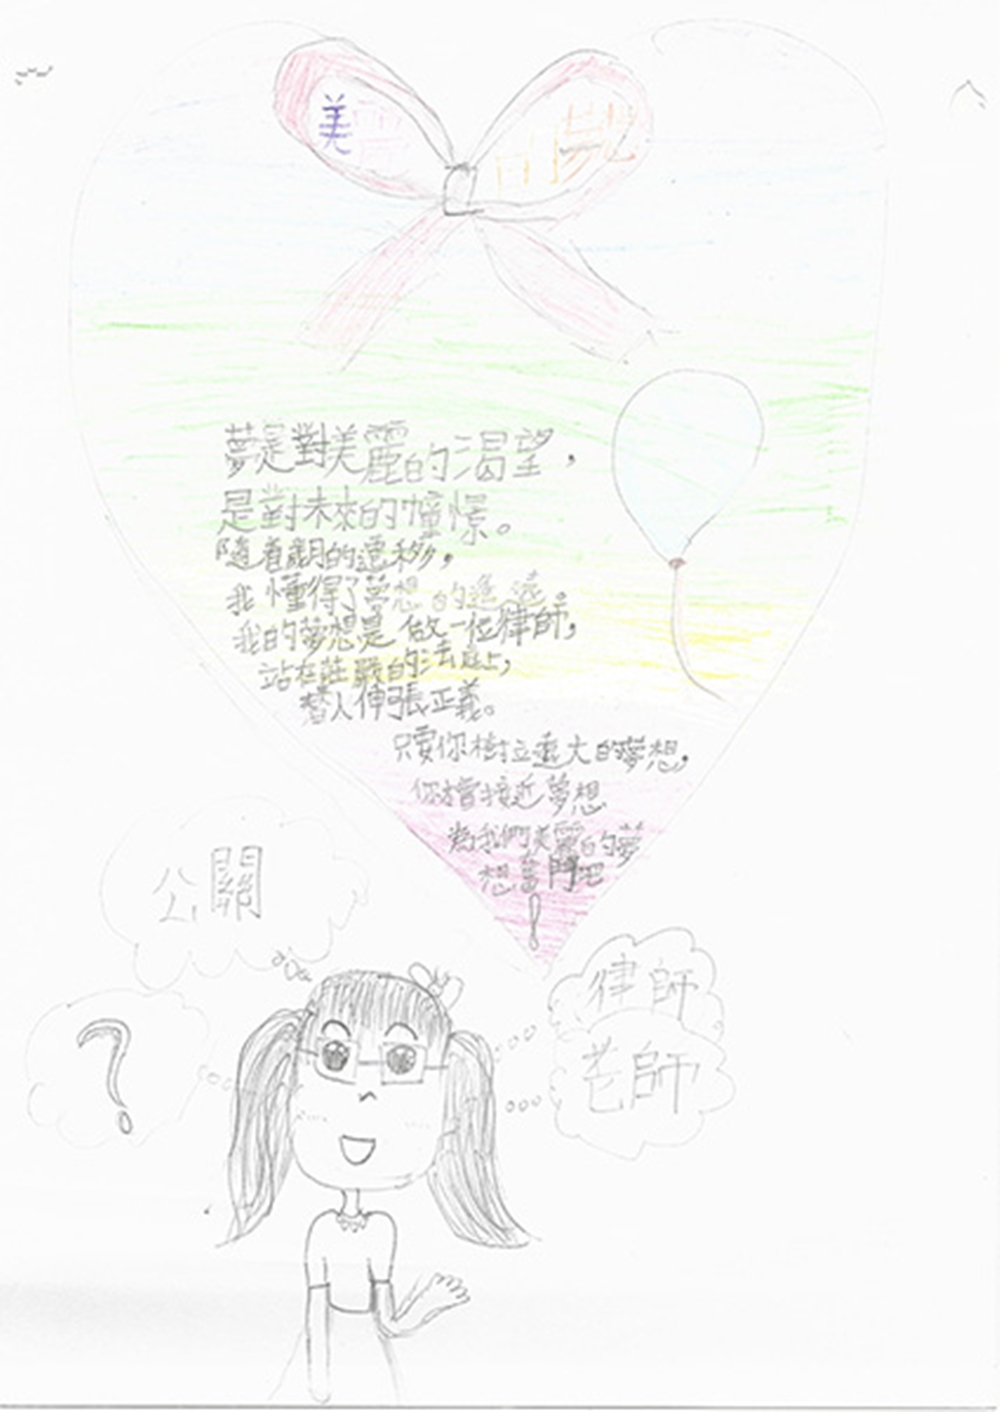 美麗的夢
夢是對美麗的渴望，
是對未來的憧憬。
隨着歲月的遷移，
我懂得了夢想的遙遠。
我的夢想是做一位律師，
站在莊嚴的法庭上，
替人伸張正義。
只要你樹立遠大的夢想，
你才會接近夢想
為我們美麗的夢
想奮鬥吧
！
公關
？
律師
老師